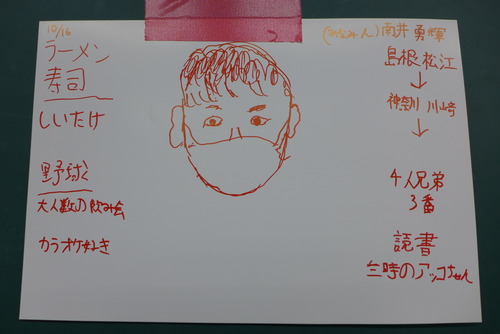 10/16
ラーメン
寿司
しいたけ
野球
大人数の飲み会
カラオケ好き
(みなみん)南井勇輝
島根 松江
↓
神奈川 川崎
↓
4人兄弟
3番
読書
三時のアッコちゃん